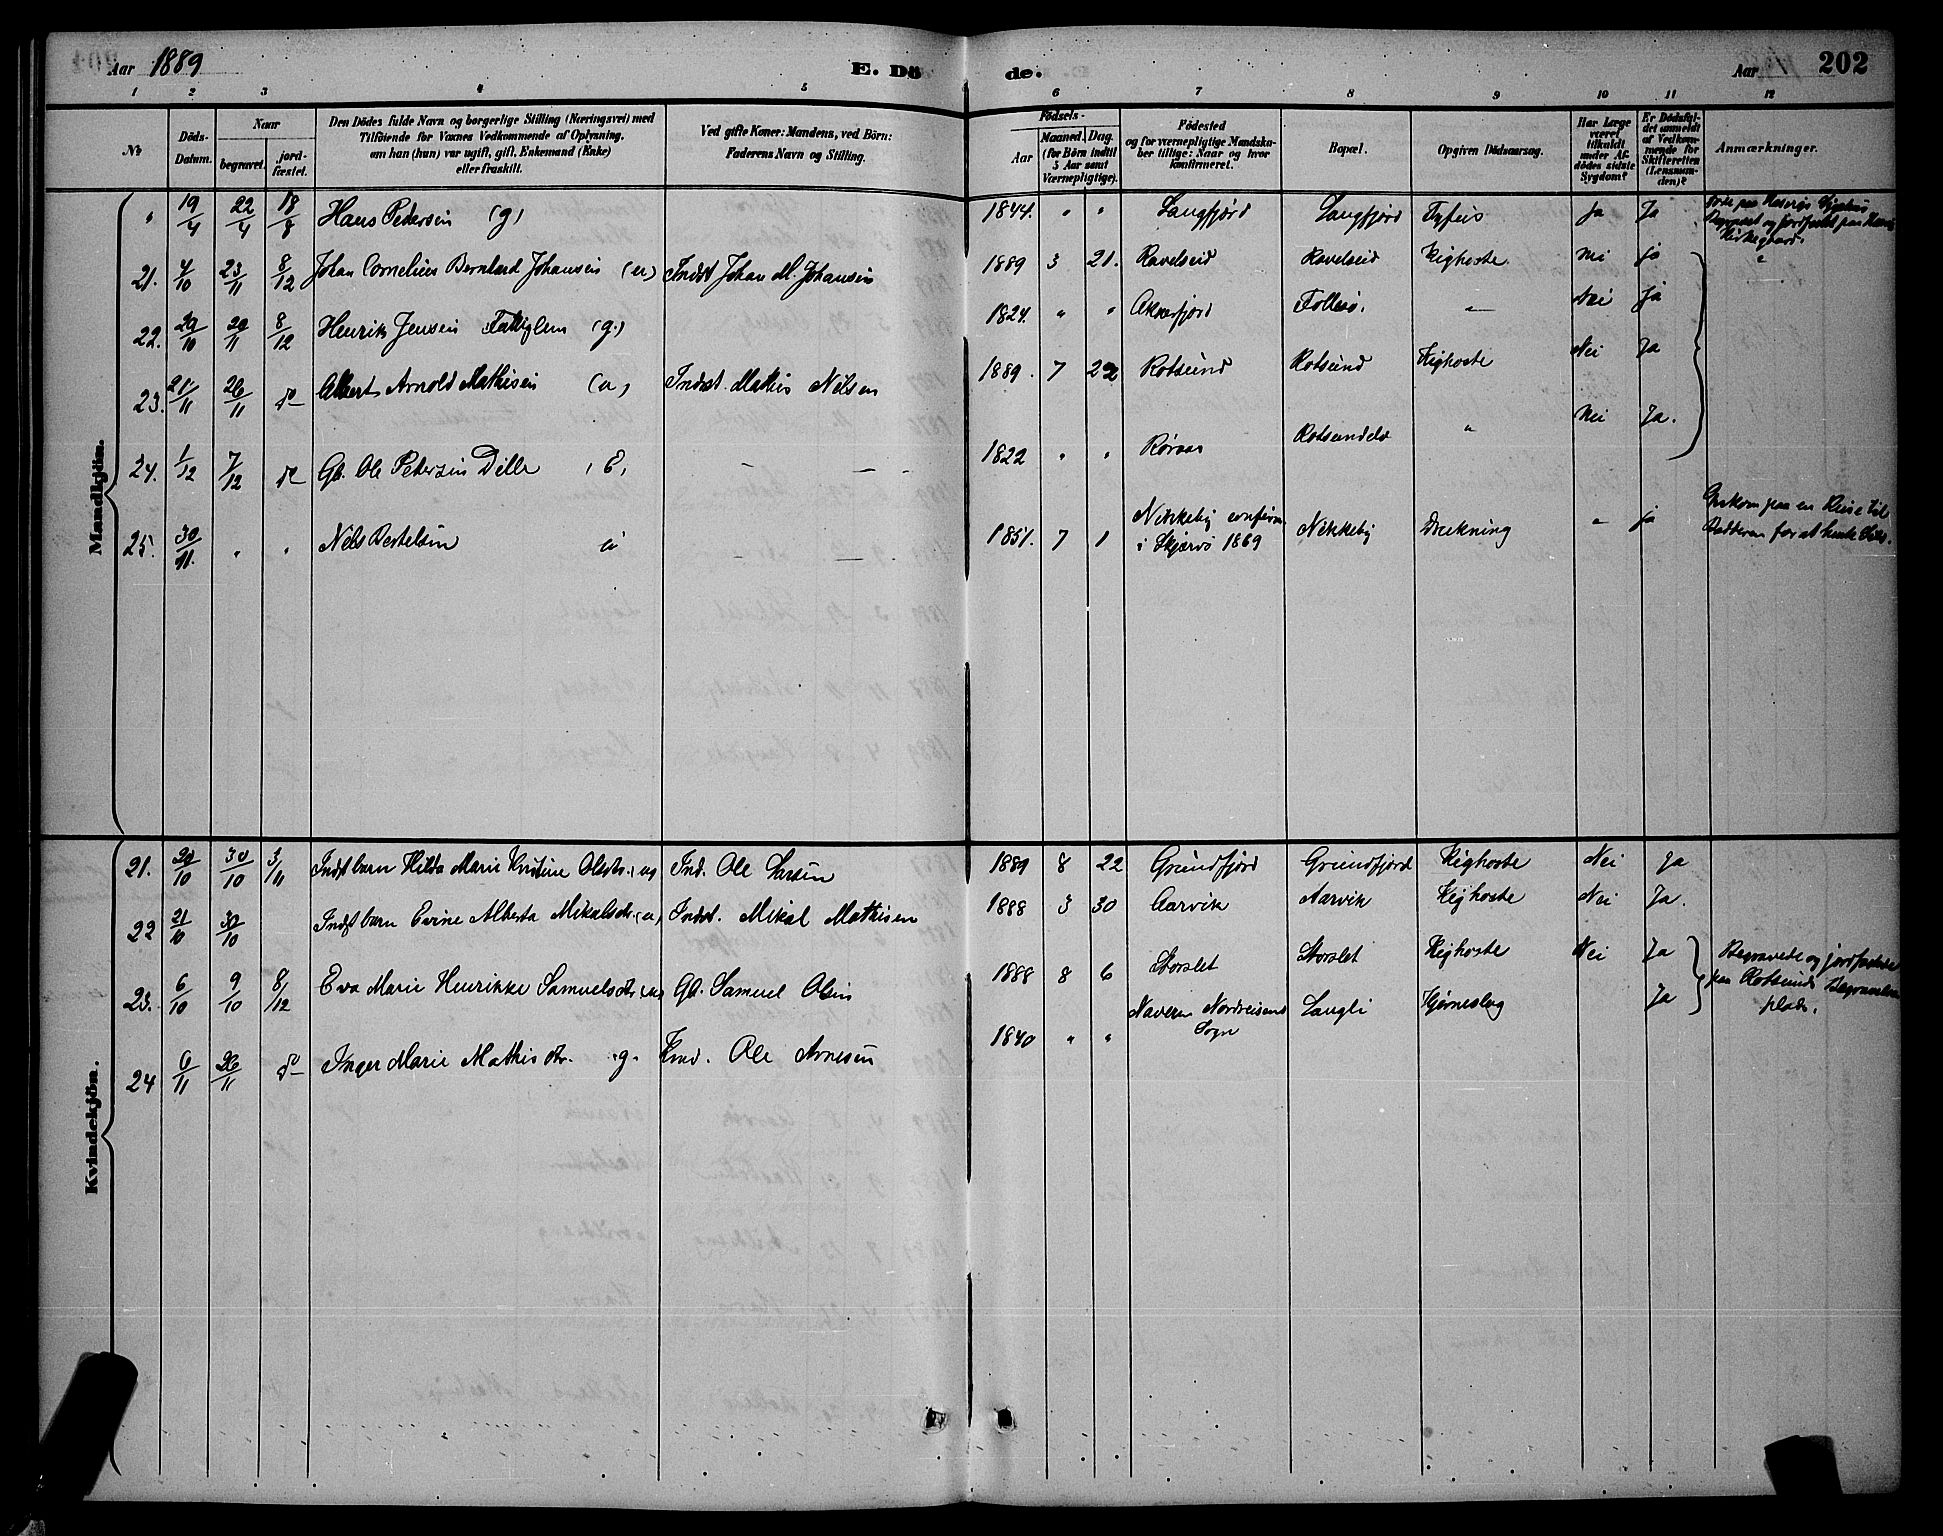 Aar 1889 E. Dö de. Aar 202
1 2 3 4 5 6 7 8 9 10 11 12
No. Döds-Datum. Naar begravet. jord-fæstet. Den Dödes fulde Navn og borgerlige Stilling (Næringsvei) med Tilföiende for Voxnes Vedkommende af Oplysning, om han (hun) var ugift, gift, Enkemand (Enke) eller fraskilt. Ved gifte Koner: Mandens, ved Börn: Faderens Navn og Stilling. Födsels- Aar Maaned. Dag. (for Börn indtil 5 Aar samt Værnepligtige). Födested og for værnepligtige Mandska-ber tillige: Naar og hvor konfirmeret. Bopæl. Opgiven Dödsaarsag. Har Læge været tilkaldt under Af-dödes sidste Sygdom? Er Dödsfal-det anmeldt af Vedkom-mende for Skifteretten (Lensman-den)? Anmærkninger.
Mandkjön.
" 19/4 22/4 18/8 Hans Pedersen (g) 1844. " " Langfjord Langfjord Tyfus Ja Ja
21. 4/10 23/11 8/12 Johan Cornelius Bernhard Johansen (u) Indst Johan M. Johansen 1889 3 21. Ravelseid Ravelseid Kighoste Nei ja
22. 29/10 29/11 8/12 Henrik Jensen Fattiglem (g.) 1824. " " Follesö. — Nei Ja
23. 21/11 26/11 do Albert Arnold Mathisen (u) Indst. Mathis Nilsen 1889. 7 22 Rotsund Rotsund Kighoste Nei Ja
24. 1/12 7/12 do Gb. Ole Petersen Dille (E) — — 1822 " " Röraas Rotsundelv " Nei Ja.
25. 30/11. " " Nels Bertelsen u — — 1851. 7 1 Nikkeby confirm. i Skjervö 1869 Nikkeby Drukning " ja Omkom paa en Reise til
Kvindekjön.
21. 20/10 30/10 3/11 Indst barn Hilda Marie Kristine Olsdtr. (u) Ind. Ole Larsen 1889 8 22 Grundfjord Grundfjord Kighoste Nei Ja
22 21/10 30/10 Indst barn Evine Alberta Mikalsdtr. (u) Indst. Mikal Mathisen 1888 3 30 Aarvik Aarvik Kighoste Nei Ja.
23. 6/10 9/10 8/12 Eva Marie Henrikke Samuelsdtr. (u) Gb. Samuel Olsen 1888 8 6 Storslet Storslet Kighoste Nei Ja Begravede og jordfæstede paa Rotsunds Begravelses plads.
24 6/11 26/11 do Inger Marie Mathisdtr. g. Kmd. Ole Arnesen 1840 " " Naveren Nordreisens Sogn Langli Hjerneslag Ja